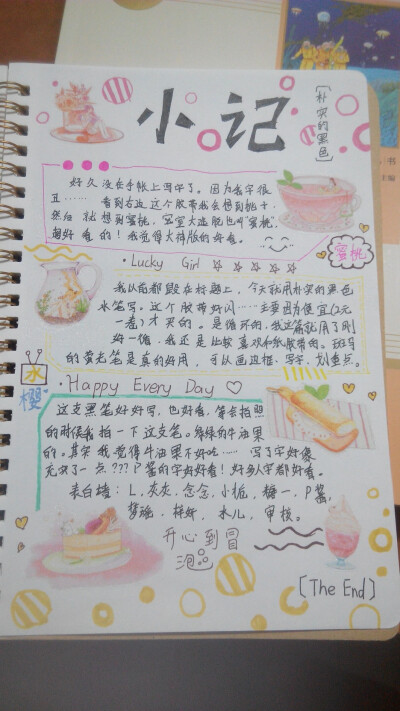 小记
[朴实的黑色]
好久没在手帐上写字了。因为我字很
丑……看到右边这个胶带我会想到桃子,
然后就想到蜜桃,宝宝大逃脱也叫“蜜桃”,
超好看的!我觉得大神版的好看。
蜜桃
·Lucky Girl ☆ ☆ ☆ ☆ ☆
我以前都毁在标题上,今天就用朴实的黑色
水笔写。这个胶带好闪……主要因为便宜(2元
一卷)才买的。是循环的,我这篇就用了刚
好一循,我还是比较喜欢和纸胶带的。斑马
的荧光笔是真的好用,可以画边框、写字、划重点。
水樱
·Happy Every Day ♡
这支黑笔好好写,也好看,等会拍照
的时候我拍一下这支笔。绿绿的牛油果
的。其实我觉得牛油果不好吃……写了字好像
充实了一点???P酱的字好好看!好多人字都好看。
表白墙:L、灰灰、念念、小栀、糖一、P酱、
梦瑶、梓妍、木儿、审核。
开心到冒
泡
[The End]